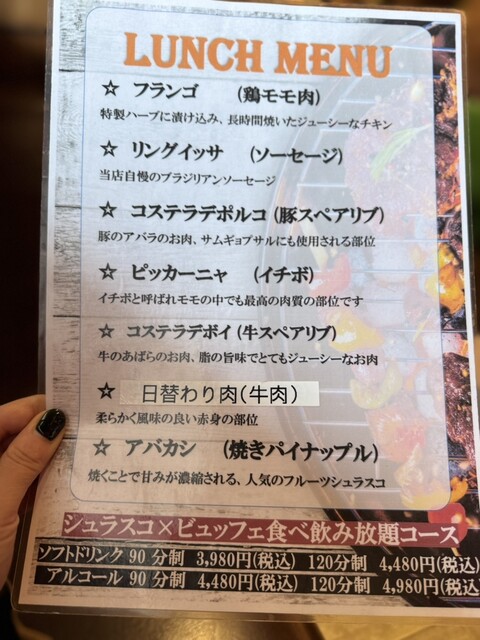 LUNCH MENU
☆ フランゴ (鶏モモ肉)
特製ハーブに漬け込み、長時間焼いたジューシーなチキン
☆ リングイッサ (ソーセージ)
当店自慢のブラジリアンソーセージ
☆ コステラデポルコ (豚スペアリブ)
豚のアバラのお肉、サムギョプサルにも使用される部位
☆ ピッカーニャ (イチボ)
イチボと呼ばれモモの中でも最高の肉質の部位です
☆ コステラデボイ (牛スペアリブ)
牛のあばらのお肉、脂の旨味でとてもジューシーなお肉
☆ 日替わり肉(牛肉)
柔らかく風味の良い赤身の部位
☆ アバカシ (焼きパイナップル)
焼くことで甘みが濃縮される、人気のフルーツシュラスコ
シュラスコ×ビュッフェ食べ飲み放題コース
ソフトドリンク 90 分制 3,980円(税込) 120分制 4,480円(税込)
アルコール 90 分制 4,480円(税込) 120分制 4,980円(税込)